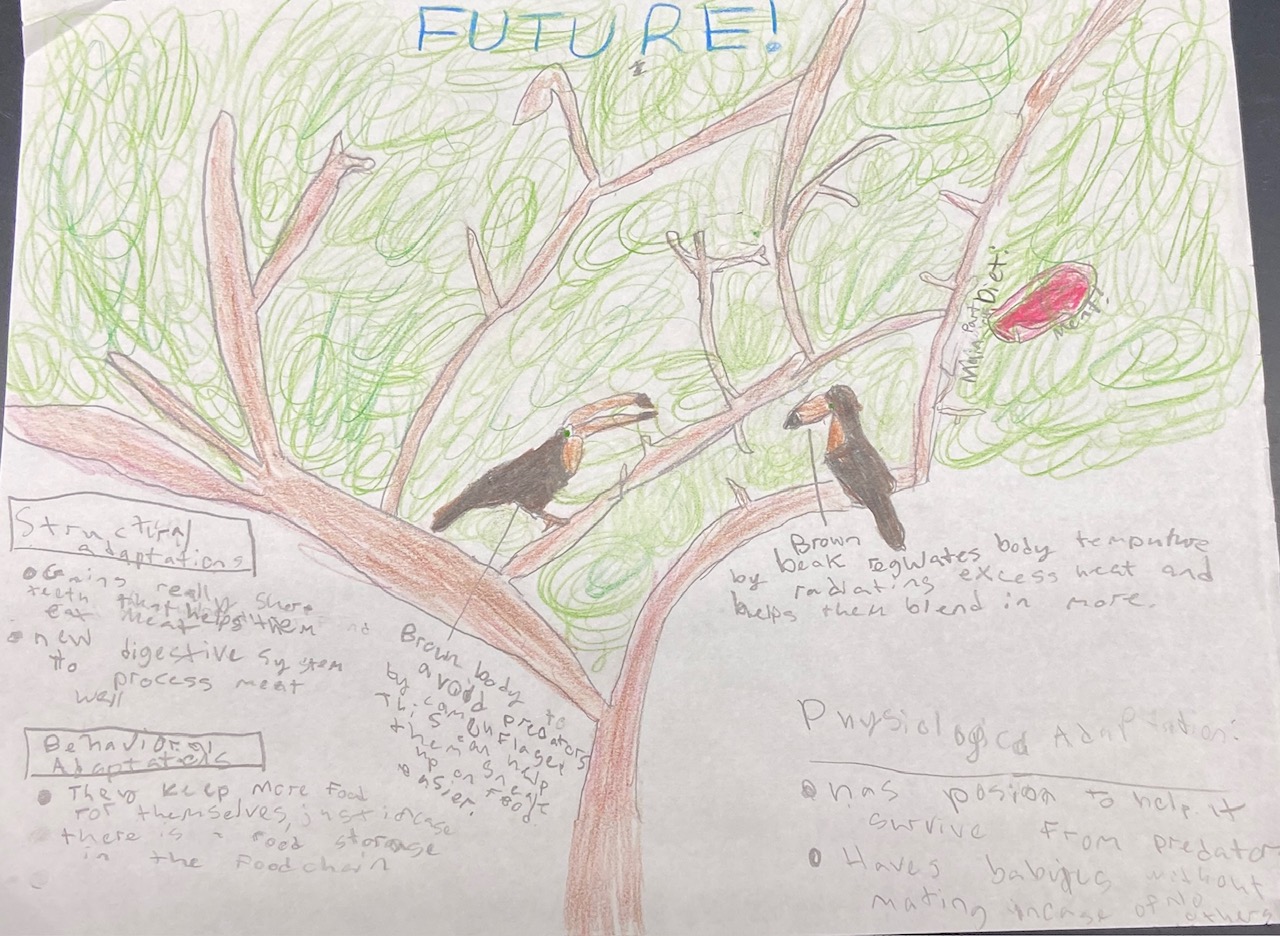 FUTURE!
Main Part
of Diet:
Meat!
Structural
adaptations
really
teeth that helps them
eat meat
new digestive System
to process meat
well
Behavioral
They keep more food
for themselves, just incase
there is a food storage
in the food chain
Brown body to
avoid predators
by camouflage
This can help
them sneak
up on food
easier.
Brown
beak regulates body
by radiating excess heat and
helps them blend in more.
Physiological Adaptation:
has posion to help it
survive from predators
Haves without
mating incase of no
others